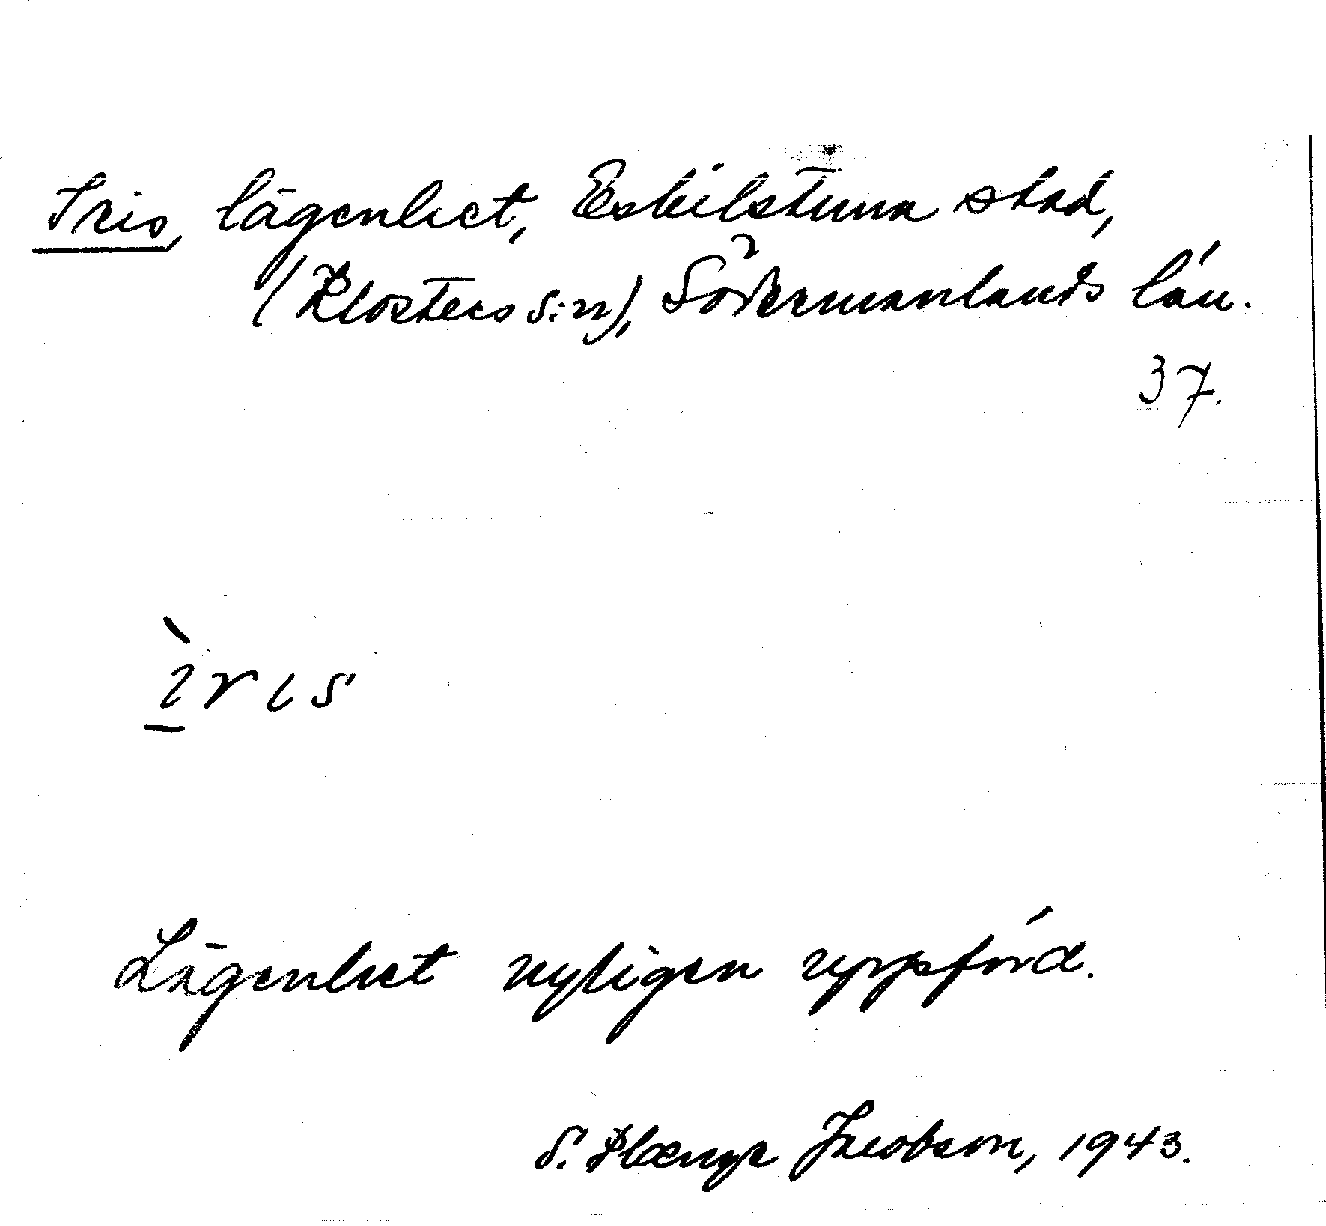 Iris, lägenhet, Eskilstuna stad,
(Klosters s:n), Södermanlands län.
37.
ìris
Lägenhet nyligen uppförd.
S. Jacobson, 1943.